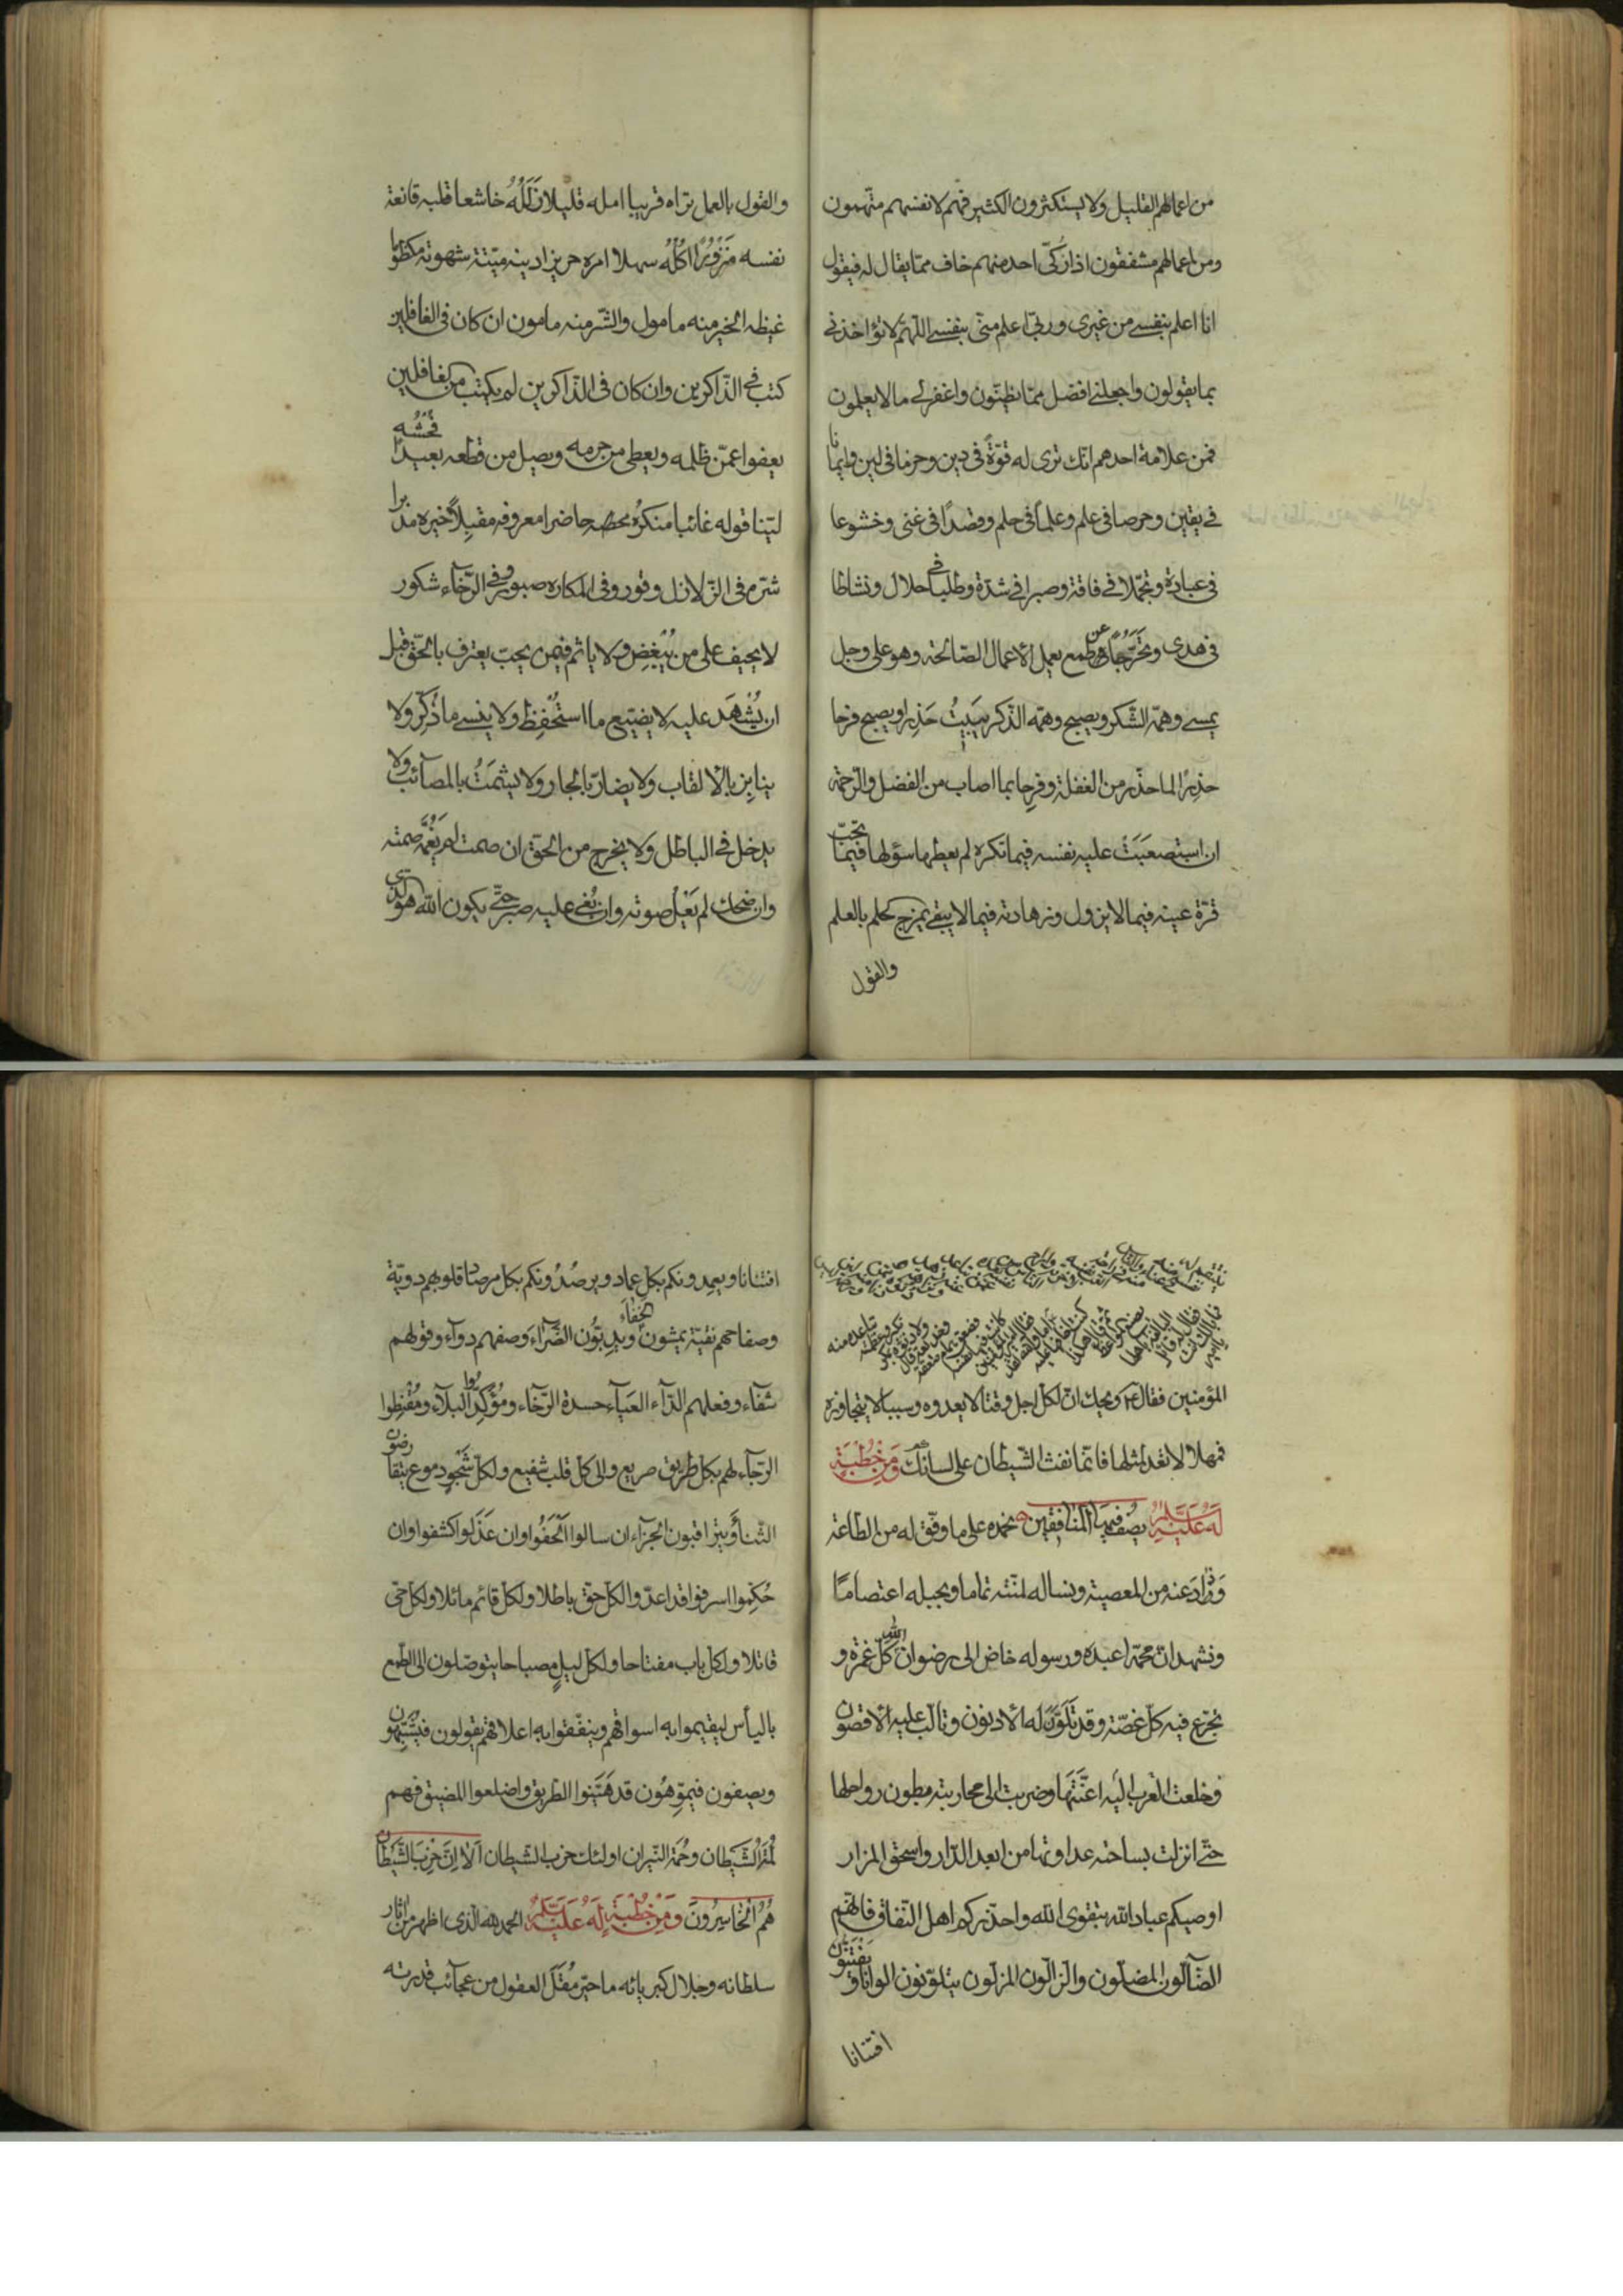 من اعمالهم القليل ولا يستكثرون الكثير فهم لانفسهم متّهمون
ومن اعمالهم مشفقون اذا زُكّى احد منهم خاف ممّا يقال له فيقول
انا اعلم بنفسى من غيرى وربّى اعلم منّى بنفسى اللّهمّ لا تؤاخذنى
بما يقولون واجعلنى افضل ممّا يظنّون واغفر لى ما لا يعلمون
فمن علامة احدهم انّك ترى له قوّةً فى دين وحزما فى لين وايمانا
فى يقين وحرصا فى علم وعلماً فى حلم وقصدًا فى غنى وخشوعا
فى عبادة وتجمّلا فى فاقة وصبرا فى شدّة وطلبا فى حلال ونشاطا
فى هدى وتَحَرُّجًا عن طمع يعمل الاعمال الصّالحة وهو على وجل
يمسى وهمّه الشّكر ويصبح وهمّه الذّكر يبيتُ حَذِرا ويصبح فرحا
حذِرًا لما حذّر من الغفلة وفرِحا بما اصاب من الفضل والرّحمة
ان استصعَبَتْ عليه نفسه فيما تكره لم يعطها سؤلها فيما تحبّ
قرّة عينه فيما لا يزول وزهادته فيما لا يبقى يمزج الحلم بالعلم
والقول
والقول بالعمل تراه قريبا امله قليلا زَلَلُهُ خاشعا قلبه قانعة
نفسه مَنزُورًا اُكُلُهُ سهلا امره حريزا دينه ميّتة شهوته مكظوما
غيظه الخير منه مامول والشّر منه مامون ان كان فى الغافلين
كتب فى الذّاكرين وان كان فى الذّاكرين لم يكتب من الغافلين
يعفوا عمّن ظلمه ويعطى من حرمه ويصل من قطعه بعيدًا فُحْشُه
ليّنا قوله غائبا منكرُه حاضرا معروفه مقبِلاً خيره مدبرا
شرّه فى الزّلازل وقور وفى المكاره صبور وفى الرّخآء شكور
لا يحيف على من يُبْغِض ولا ياثم فيمن يحبّ يعترف بالحقّ قبل
ان يُشْهَدَ عليه لا يضيّع ما استُحْفِظَ ولا ينسى ما ذُكِّر ولا
ينابِز بالالقاب ولا يضارّ بالجار ولا يشمَتُ بالمصآئب ولا
يدخل فى الباطل ولا يخرج من الحقّ ان صمت لم يَغُمَّه صمته
وان ضحك لم يَعْلُ صوته وان بُغِىَ عليه صبر حتّى يكون الله هو الذى
المؤمنين فقال ع ويحك انّ لكلّ اجل وقتا لا يعدوه وسببا لا يتجاوزه
فمهلا لا تعد لمثلها فانّما نفث الشّيطان على لسانك وَمِنْ خُطْبَةٍ
لَهُ عَلَيْهِ السَّلَامُ يصف فيها المنافقين نحمده على ما وفّق له من الطّاعة
وَذَادَ عنه من المعصية ونساله لمنّته تماما وبحبله اعتصامًا
ونشهد انّ محمّدا عبده ورسوله خاض الى رضوان الله كلّ غمرة و
تجرّع فيه كلّ غصّة وقد تَلَوَّنَ له الادنون وتالّب عليه الاقصون
وخلعت العرب اليه اعنّتها وضربت الى محاربته بطون رواحلها
حتّى انزلت بساحته عداوتها من ابعد الدّار واسحق المزار
اوصيكم عباد الله بتقوى الله واحذّركم اهل النّفاق فانّهم
الضّآلّون المضلّون والزّالّون المزلّون يتلوّنون الوانا ويَفْتَنُّون
افتنانا
افتنانا ويعمِدونكم بكلّ عماد ويرصُدُونكم بكلّ مرصاد قلوبهم دويّة
وصفاحهم نقيّة يمشون الخفاءَ ويدبّون الضّرآءَ وصفهم دوآء وقولهم
شفآء وفعلهم الدّآء العيآء حسدة الرّخآء ومُؤَكِّدوا البلآء ومُقْنِطوا
الرّجآء لهم بكلّ طريق صريع والى كلّ قلب شفيع ولكلّ شَجْوٍ دموع يتقارضون
الثّناَء ويتراقبون الجزآء ان سالوا اَلْحَفُوا وان عَذَلوا كشفوا وان
حُكّموا اسرفوا قد اعدّوا لكلّ حقّ باطلا ولكلّ قائم مائلا ولكلّ حىّ
قاتلا ولكلّ باب مفتاحا ولكلّ ليلٍ مصباحا يتوصّلون الى الطّمع
بالياْس ليقيموا به اسواقهم وينفّقوا به اعلاقهم يقولون فيُشَبِّهون
ويصفون فيموِّهُون قد هَيَّنوا الطّريق واضلعوا المضيق فهم
لُمَةُ الشَّيطان وحُمَة النّيران اولئك حزب الشّيطان اَلَا اِنَّ حِزبَ الشَّيْطَانِ
هُمُ الْخَاسِرُونَ وَمِنْ خُطْبَةٍ لَهُ عَلَيْهِ السَّلَامُ الحمد لله الّذى اظهر من اثار
سلطانه وجلال كبريائه ما حيّر مُقَلَ العقول من عجآئب قدرته